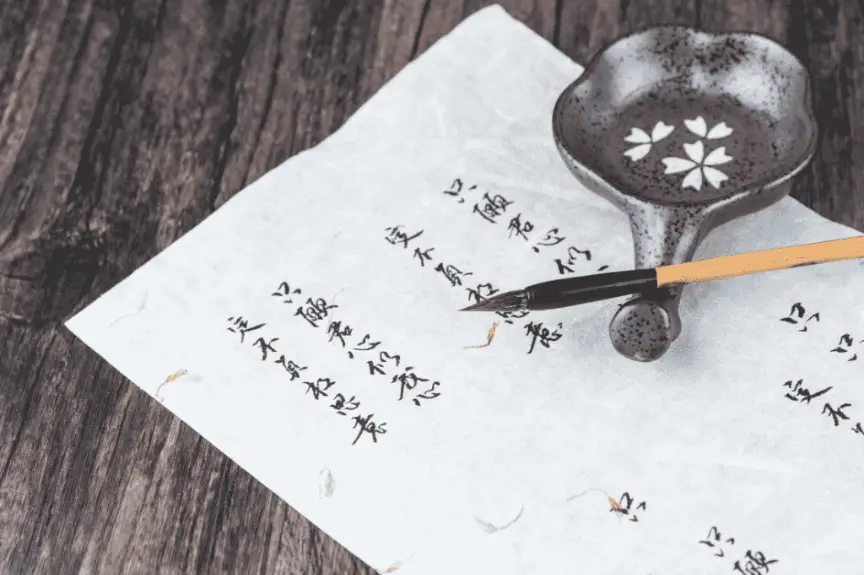 只
只
定不
只願
只
只願君心似
定不負相思意
只願君心似我心
定不負相思意